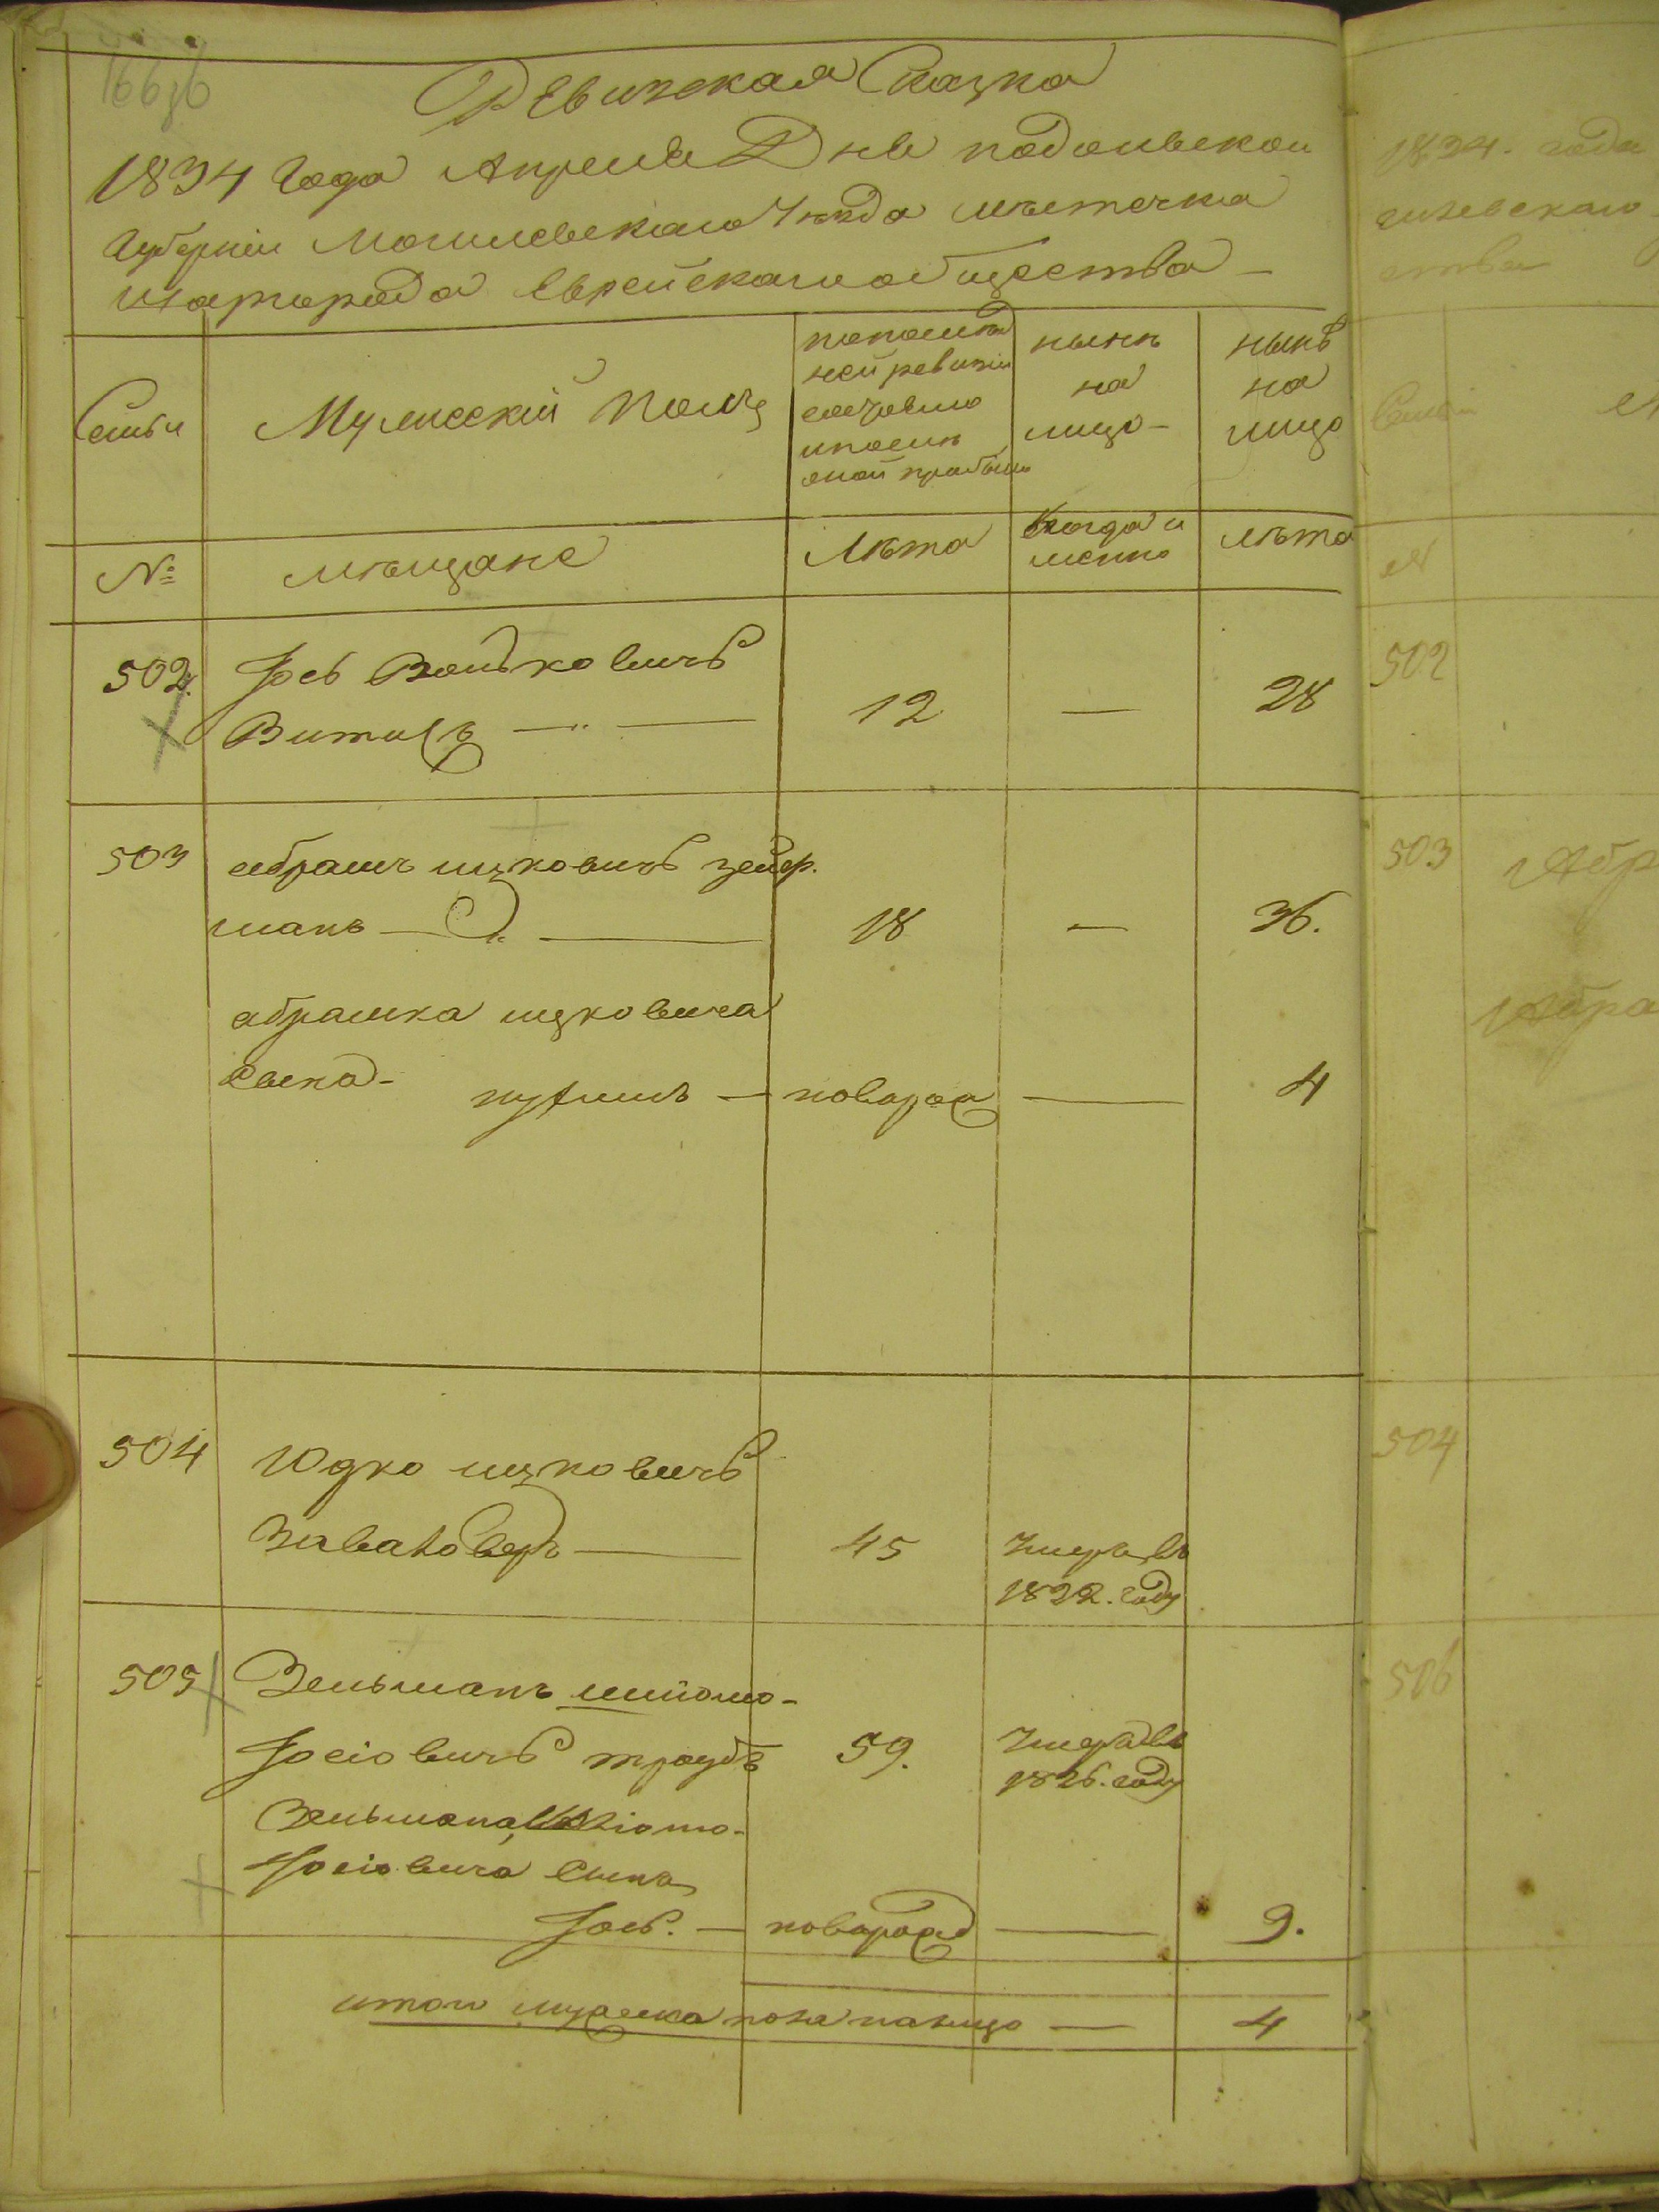 Ревизская Сказка
1834 Года Апреля Дня подольской
Губернии Могилевскаго Уезда местечка
шаргорода Еврейскаго общества
Семьи
Мужеский Полъ
по последней ревизіи состояло и после оной прибыло
ныне на лицо
ныне на лицо
№
мещане
Лета
Когда именно
лета
502
Іось Волько вичъ
Витисъ
12
28
503
абрамъ ицковичъ зейф.
манъ
18
36.
абрамка ицковича
сына
новорож
4
504
Юдко ицковичъ
45
Умеръ въ
1822. году
505
Зельманъ шліомо-
Іосіовичъ траубъ
59.
Умеръ въ
1826. году
Зельмана шліомо-
Іосіовича сына
Іось.
новорож
9.
итого мужеска пола налицо
4
1834. года
502
503
Абр
Абра
504
506